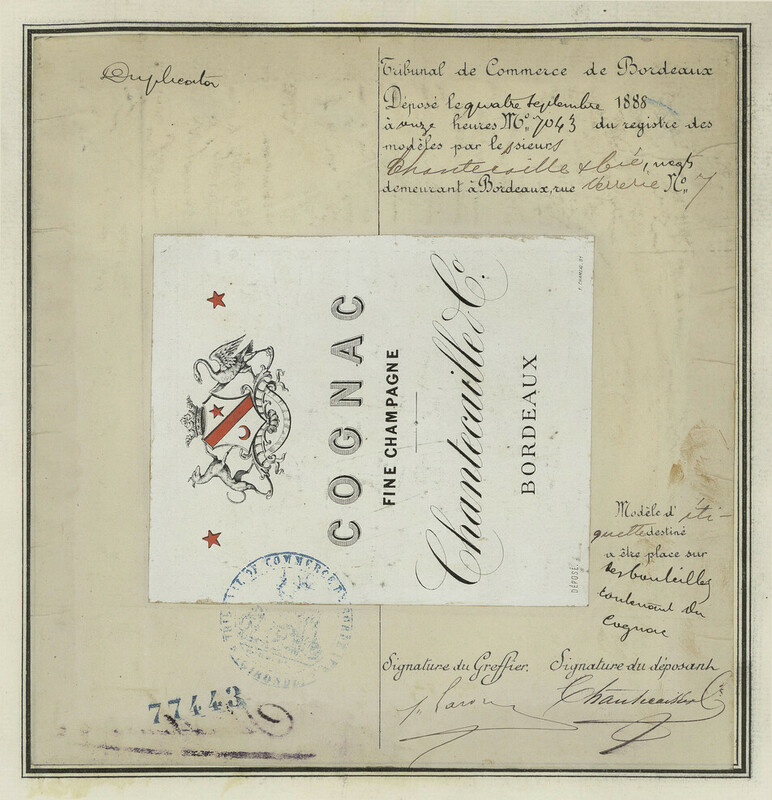 Duplicata
Tribunal de Commerce de Bordeaux
Déposé le quatre septembre 1888
à onze heures No. 7043 du registre des
modèles par le sieurs
Chantecaille & Cie, negts
demeurant à Bordeaux, rue Verrerie No. 7
COGNAC
FINE CHAMPAGNE
Chantecaille & Co.
BORDEAUX
DÉPOSÉ
Modèle d'éti-
quette destiné
a être place sur
les bouteilles
contenant du
Cognac
TRIBUNAL DE COMMERCE DE BORDEAUX
(GIRONDE)
Signature du Greffier.
Signature du déposant
Chantecaille & Co
77443